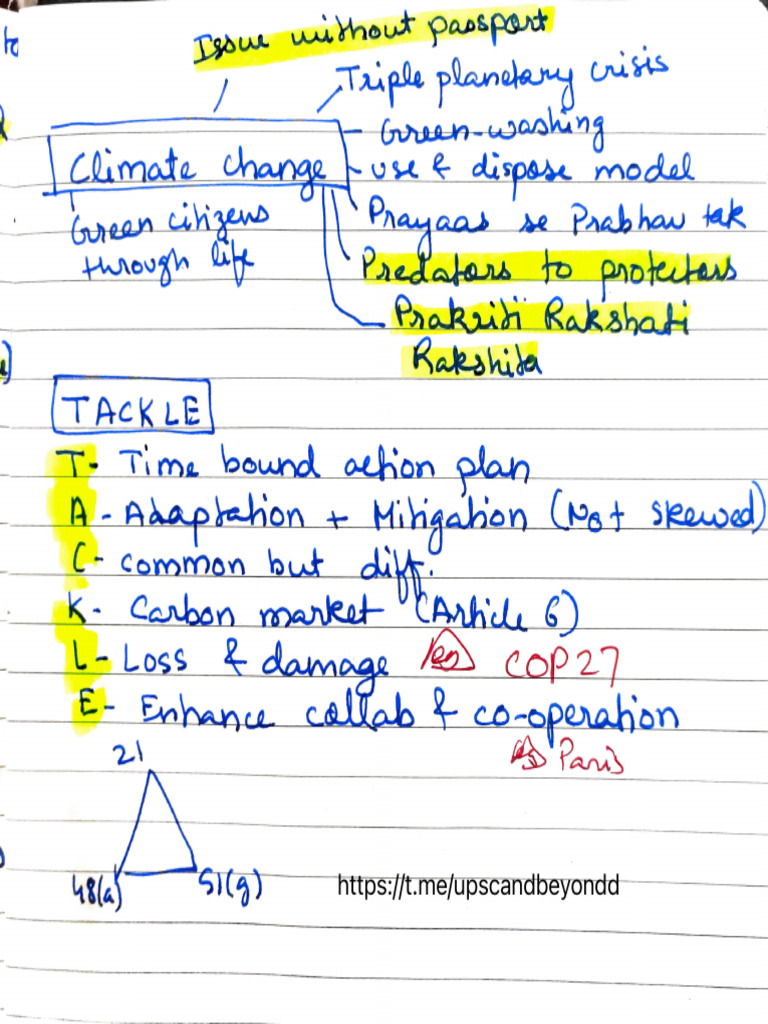 Issue without passport
Triple planetary crisis
- Green-washing
Climate change - use & dispose model
Green citizens
through life
Prayaas se Prabhav tak
Predators to protectors
Prakriti Rakshati
Rakshita
TACKLE
T- Time bound action plan
A - Adaptation + Mitigation (Not skewed)
C - common but diff.
K- Carbon market (Article 6)
L- Loss & damage COP27
E- Enhance collab & co-operation
Paris
21
48(a) 51(g)
https://t.me/upscandbeyondd